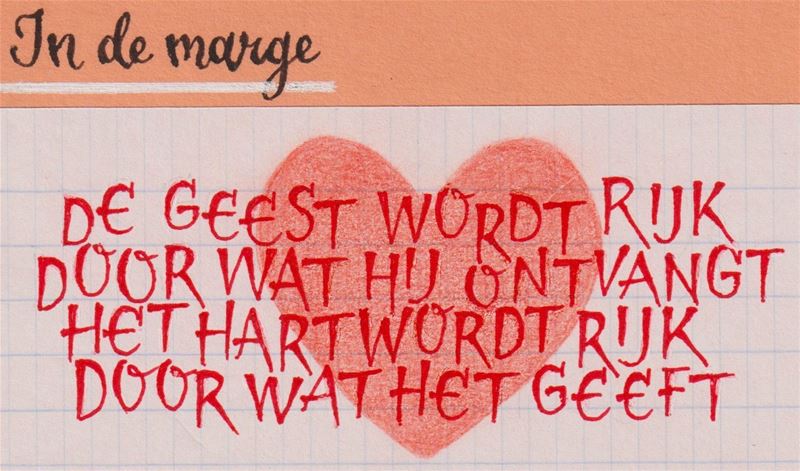 In de marge
DE GEEST WORDT RIJK
DOOR WAT HIJ ONTVANGT
HET HART WORDT RIJK
DOOR WAT HET GEEFT